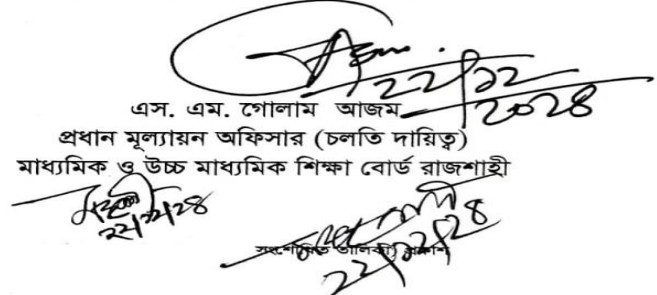 ২২/১২
২০২৪
এস. এম. গোলাম আজম
প্রধান মূল্যায়ন অফিসার (চলতি দায়িত্ব)
মাধ্যমিক ও উচ্চ মাধ্যমিক শিক্ষা বোর্ড রাজশাহী
২২/১২/২৪
সংশোধিত তালিকা প্রকাশ
২২/১২/২৪